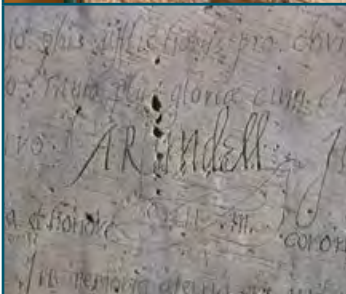 to plus afflictionis pro chri
plus gloriæ cum ch
uro ARundell J
a et honore coron
In memoria æterna